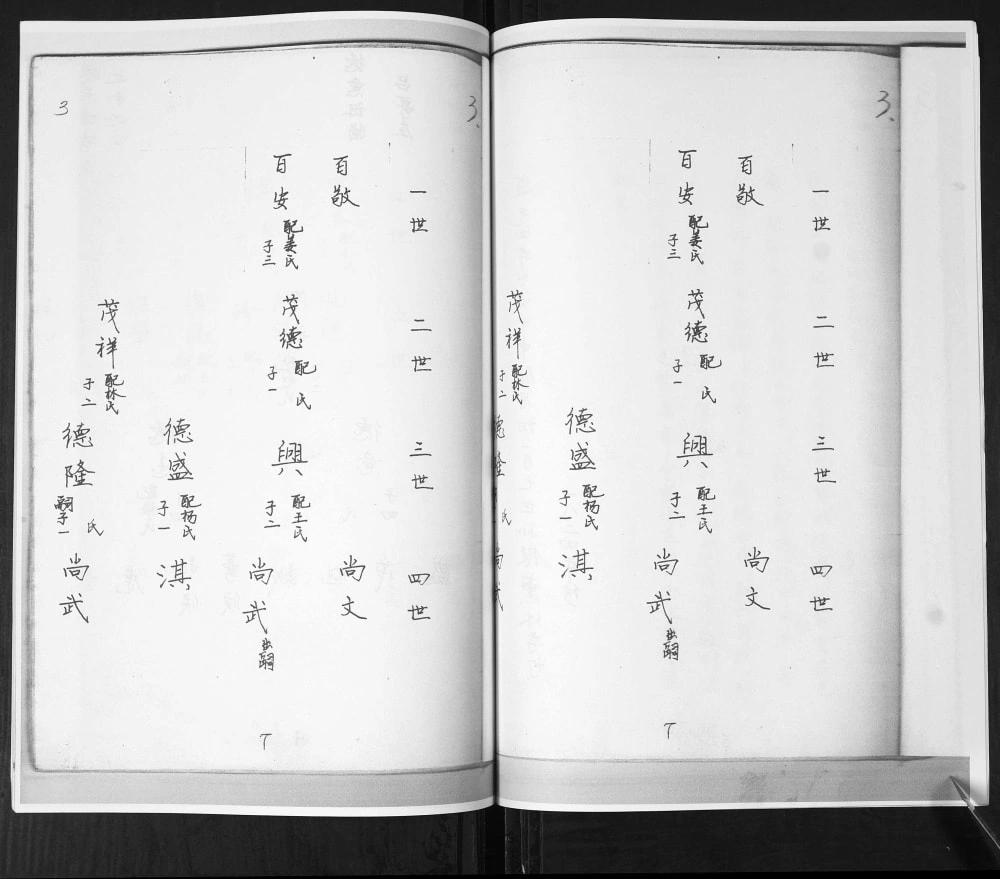 3.
一世
二世
三世
四世
百敬
百安 配姜氏 子三
茂德 配 氏 子一
興 配王氏 子二
尚文
尚武 出嗣
德盛 配杨氏 子一
淇
茂祥 配林氏 子二
德隆 氏
尚武
7
3.
3
一世
二世
三世
四世
百敬
百安 配姜氏 子三
茂德 配 氏 子一
興 配王氏 子二
尚文
尚武 出嗣
德盛 配杨氏 子一
淇
茂祥 配林氏 子二
德隆 氏 嗣子一
尚武
7